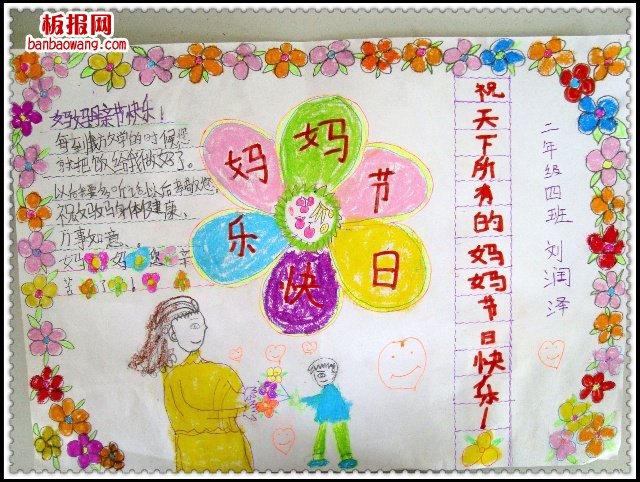 板报网
banbaowang.com
妈妈母亲节快乐！
每到 放学的时候您
就把饭给我做好了。
以后
祝妈妈身体健康、
万事如意、
妈妈
妈妈节日快乐
祝天下所有的妈妈节日快乐！
二年级四班 刘润泽